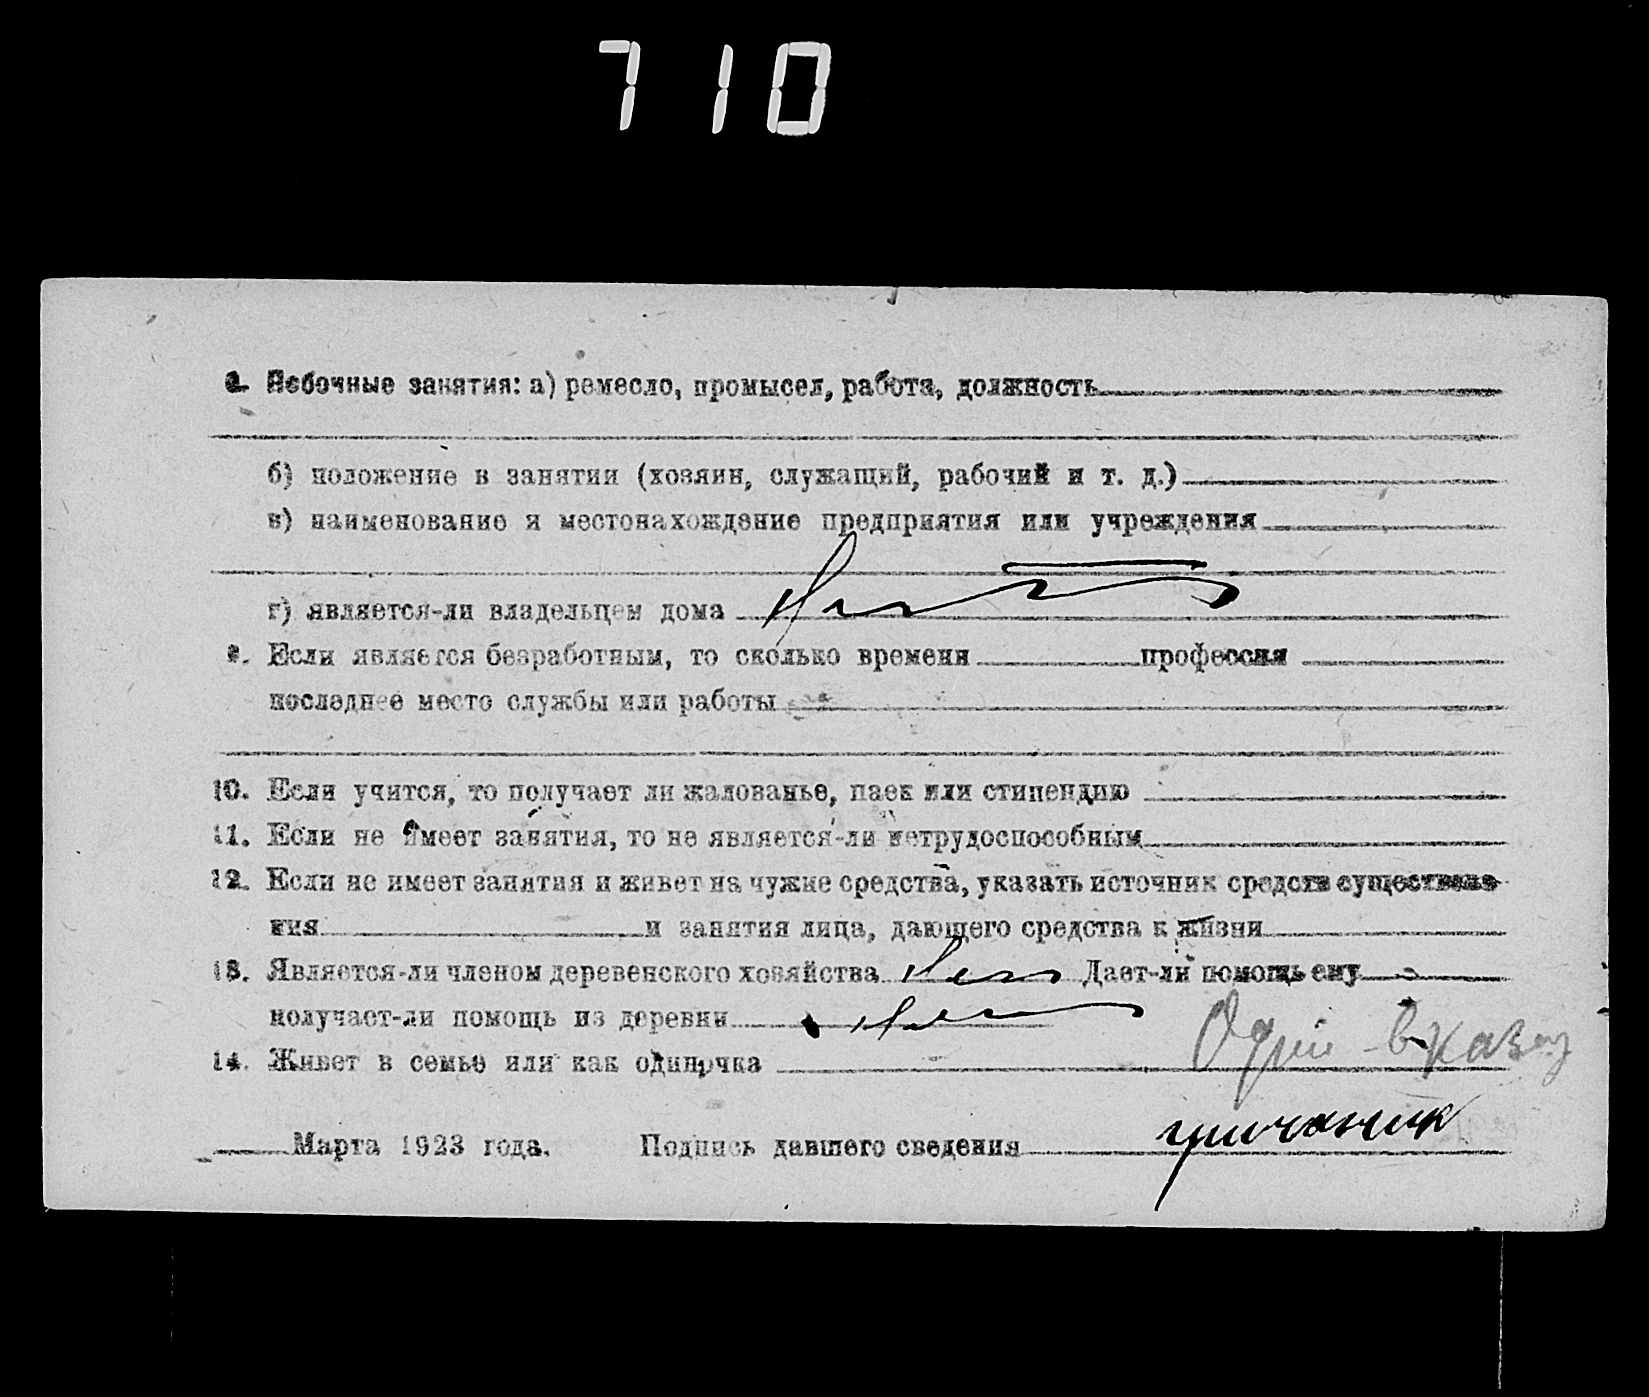 710
8. Побочные занятия: а) ремесло, промысел, работа, должность
б) положение в занятии (хозяин, служащий, рабочий и т. д.)
в) наименование и местонахождение предприятия или учреждения
г) является-ли владельцем дома Нет
9. Если является безработным, то сколько времени профессия
последнее место службы или работы
10. Если учится, то получает ли жалованье, паек или стипендию
11. Если не имеет занятия, то не является-ли нетрудоспособным
12. Если не имеет занятия и живет на чужие средства, указать источник средств существова-
ния и занятия лица, дающего средства к жизни
13. Является-ли членом деревенского хозяйства Нет Дает-ли помощь ему
получает-ли помощь из деревни Нет
14. Живет в семье или как одиночка
Марта 1923 года. Подпись давшего сведения